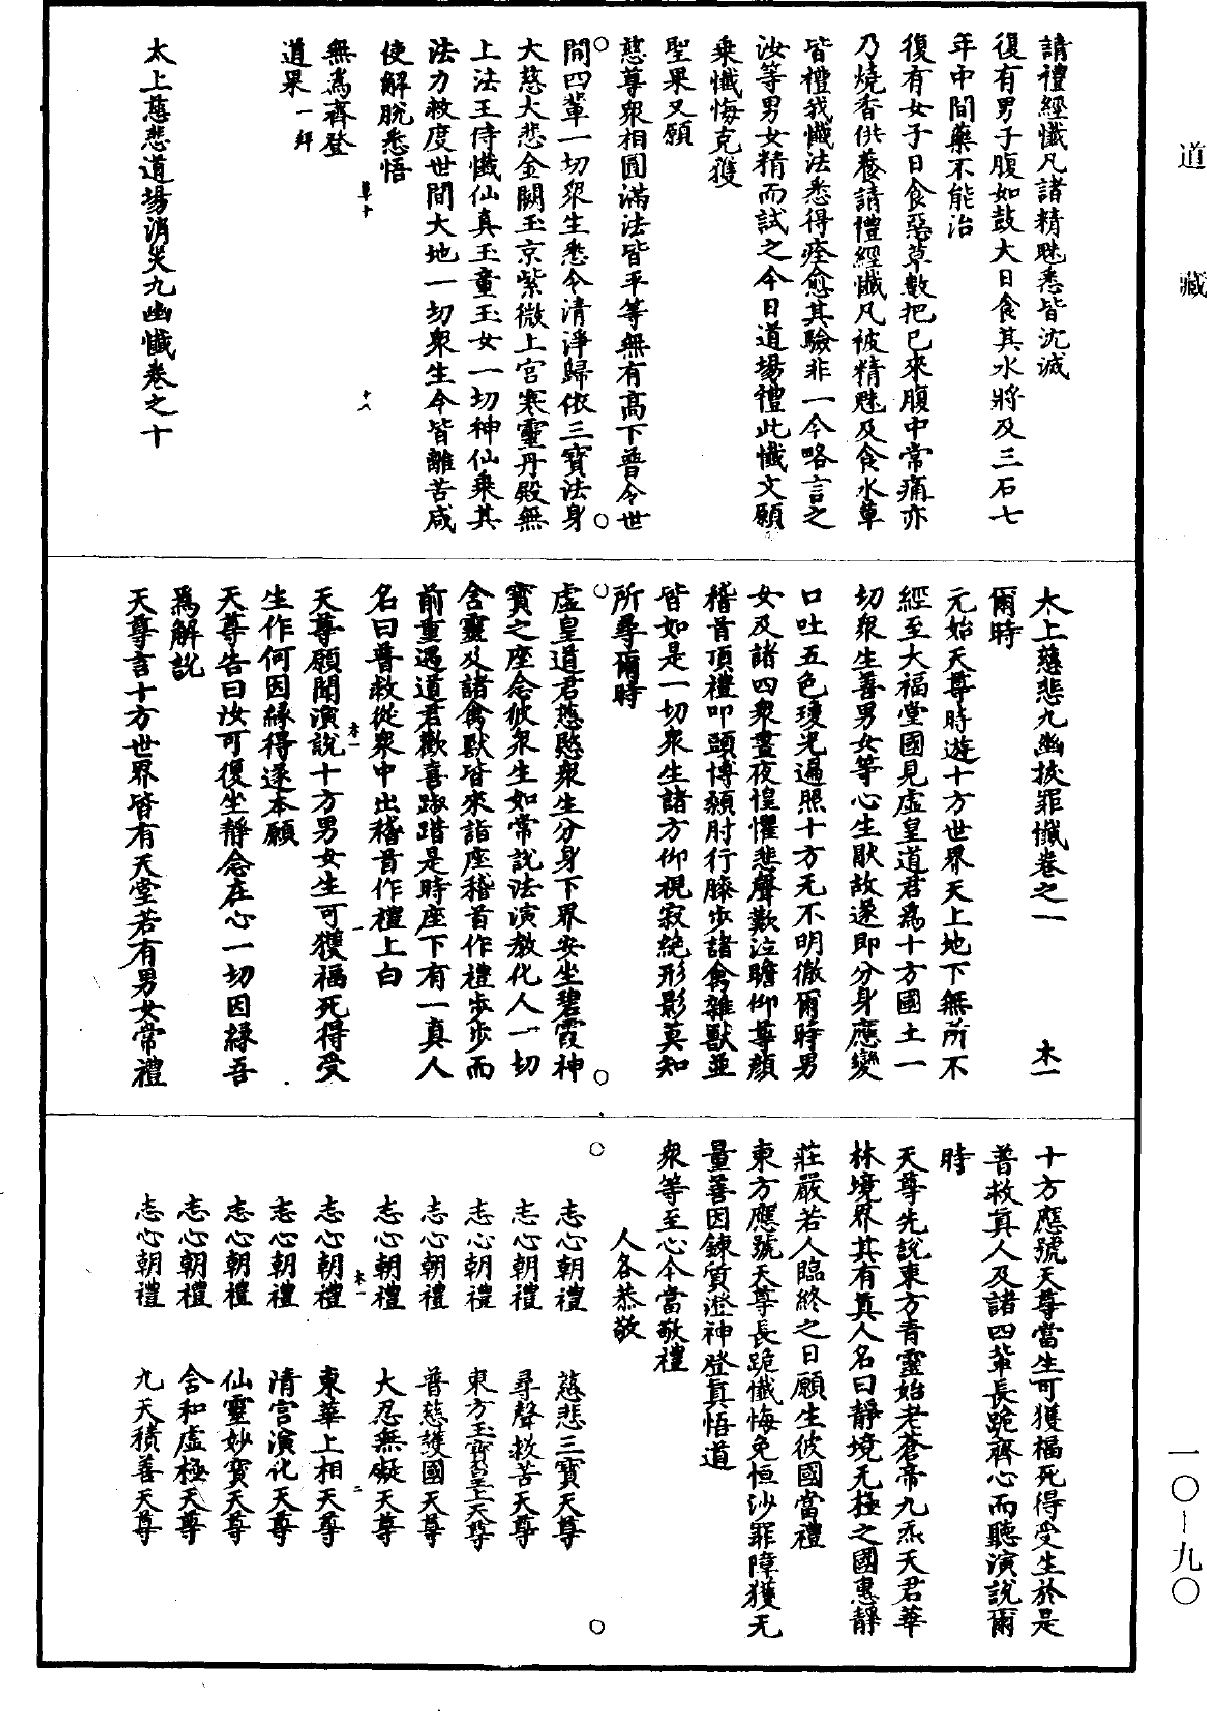 道藏
請禮經懺凡諸精魅悉皆沈滅
復有男子腹如鼓大日食其水將及三石七
年中間藥不能治
復有女子日食惡草數把已來腹中常痛亦
乃燒香供養請禮經懺凡被精魅及食水草
皆禮我懺法悉得痊愈其驗非一今略言之
汝等男女精而試之今日道場禮此懺文願
乘懺悔克獲
聖果又願
慈尊衆相圓滿法皆平等無有高下普令世
間四輩一切衆生悉令清淨歸依三寶法身
大慈大悲金闕玉京紫微上宮寒靈丹殿無
上法王侍懺仙真玉童玉女一切神仙乘其
法力救度世間大地一切衆生令皆離苦咸
使解脫悉悟
草十 十八
無為齊登
道果一拜
太上慈悲道場消災九幽懺卷之十
太上慈悲九幽拔罪懺卷之一 木一
爾時
元始天尊時遊十方世界天上地下無所不
經至大福堂國見虛皇道君為十方國土一
切衆生善男女等心生猒故遂即分身應變
口吐五色瓊光遍照十方无不明徹爾時男
女及諸四衆晝夜惶懼悲聲歎泣瞻仰尊顏
稽首頂禮叩頭博頰肘行膝步諸禽雜獸並
皆如是一切衆生諸方仰視寂絶形影莫知
所尋爾時
虛皇道君慈愍衆生分身下界安坐碧霞神
寶之座念彼衆生如常說法演教化人一切
含靈及諸禽獸皆來詣座稽首作禮步步而
前重遇道君歡喜踧踖是時座下有一真人
名曰普救從衆中出稽首作禮上白
木一 一
天尊願聞演說十方男女生可獲福死得受
生作何因緣得遂本願
天尊告曰汝可復坐靜念在心一切因緣吾
為解說
天尊言十方世界皆有天堂若有男女常禮
十方應號天尊當生可獲福死得受生於是
普救真人及諸四輩長跪齊心而聽演說爾
時
天尊先說東方青靈始老蒼帝九炁天君華
林境界其有真人名曰靜境无極之國惠靜
莊嚴若人臨終之日願生彼國當禮
東方應號天尊長跪懺悔免恒沙罪障獲无
量善因鍊質澄神登真悟道
衆等至心今當敬禮
人各恭敬
志心朝禮 慈悲三寶天尊
志心朝禮 尋聲救苦天尊
志心朝禮 東方玉寶皇上天尊
志心朝禮 普慈護國天尊
志心朝禮 大忍無礙天尊
木一 二
志心朝禮 東華上相天尊
志心朝禮 清宮演化天尊
志心朝禮 仙靈妙寶天尊
志心朝禮 含和虛極天尊
志心朝禮 九天積善天尊
一〇-九〇